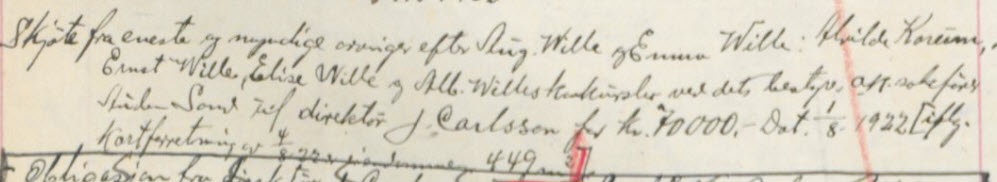 Skjøte fra eneste og myndige arvinger efter Aug. Wille og Emma Wille: Alvilde
Ernst Wille, Elise Wille og Alb. Willes konkursbo ved dets bestyr. o.r. sakfører
Sand til direktør J. Carlsson for Kr. 70000.- Dat. 1/8 1922 [ifly.
Kartforretning av 4/8 22 449 m2]
Obligasjon fra direktør